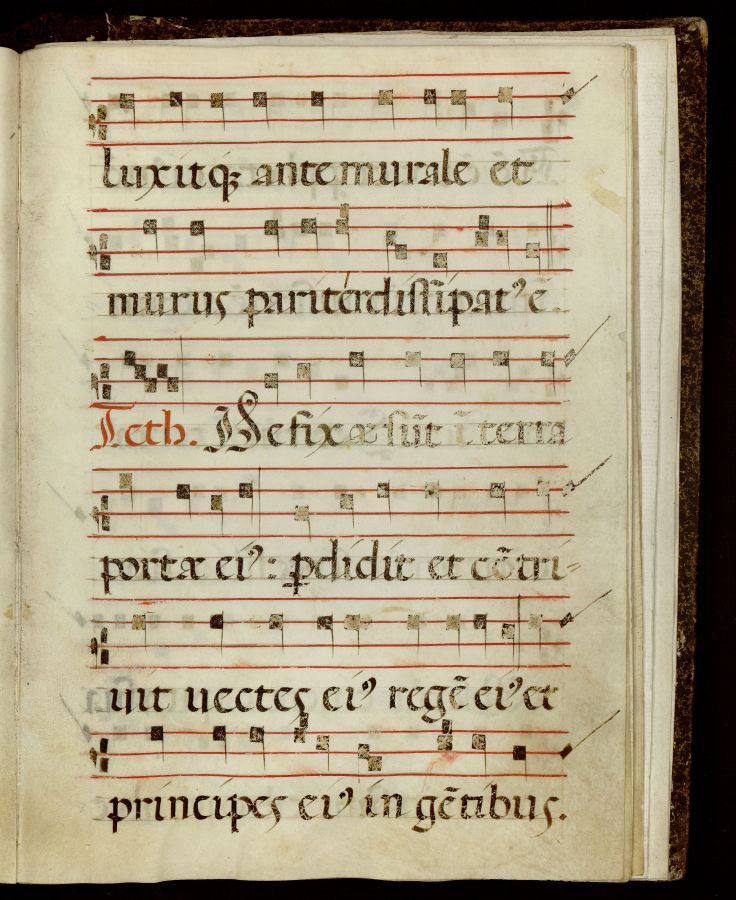 luxitq; ante murale et
murus pariter dissi͂pat⁹ e͂.
Teth. Defixæ su͂t i͂ terra
portæ ei⁹: ꝑdidit et co͂tri-
uit uectes ei⁹ rege͂ ei⁹ et
principes ei⁹ in ge͂tibus.